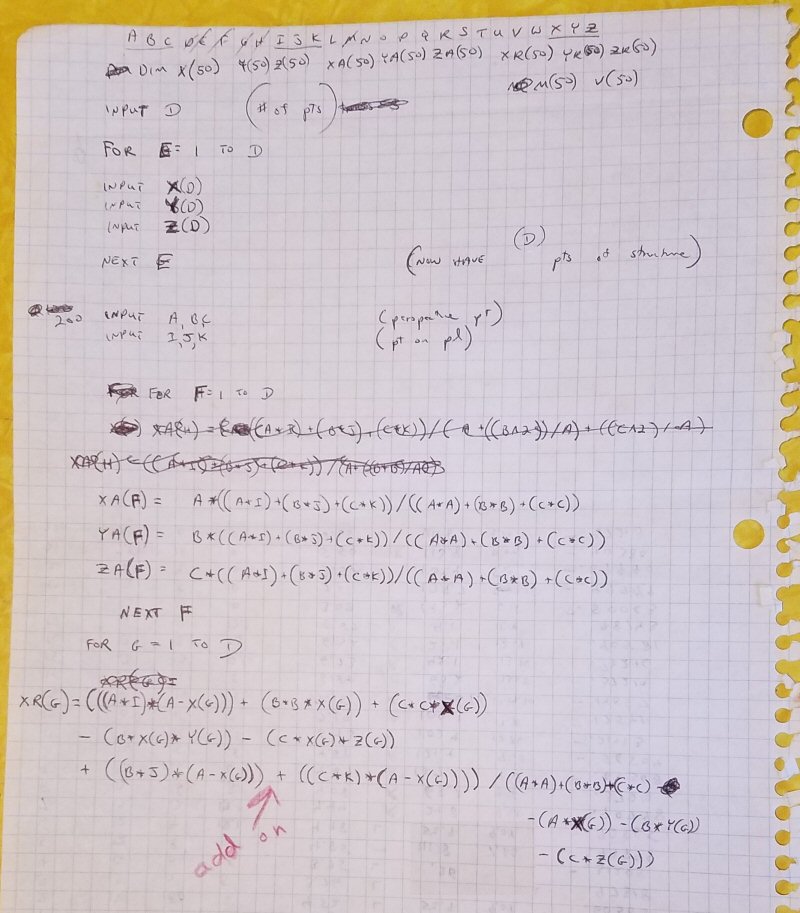 A B C D E F G H I J K L M N O P Q R S T U V W X Y Z
DIM X(50) Y(50) Z(50) XA(50) YA(50) ZA(50) XR(50) YR(50) ZR(50)
M(50) V(50)
INPUT D (# of pts)
FOR E = 1 TO D
INPUT X(D)
INPUT Y(D)
INPUT Z(D)
NEXT E (NOW HAVE (D) pts of structure)
200 INPUT A, B, C (perspective pt)
INPUT I, J, K (pt on pl)
FOR F = 1 TO D
XA(H) =
XA(F) = A*((A*I)+(B*J)+(C*K))/((A*A)+(B*B)+(C*C))
YA(F) = B*((A*I)+(B*J)+(C*K))/((A*A)+(B*B)+(C*C))
ZA(F) = C*((A*I)+(B*J)+(C*K))/((A*A)+(B*B)+(C*C))
NEXT F
FOR G = 1 TO D
XR(G)=
XR(G)=(((A*I)*(A-X(G)))+(B*B*X(G))+(C*C*X(G))
-(B*X(G)*Y(G))-(C*X(G)*Z(G))
+((B*J)*(A-X(G)))+((C*K)*(A-X(G))))/((A*A)+(B*B)+(C*C)
-(A*X(G))-(B*Y(G))
-(C*Z(G)))
add on